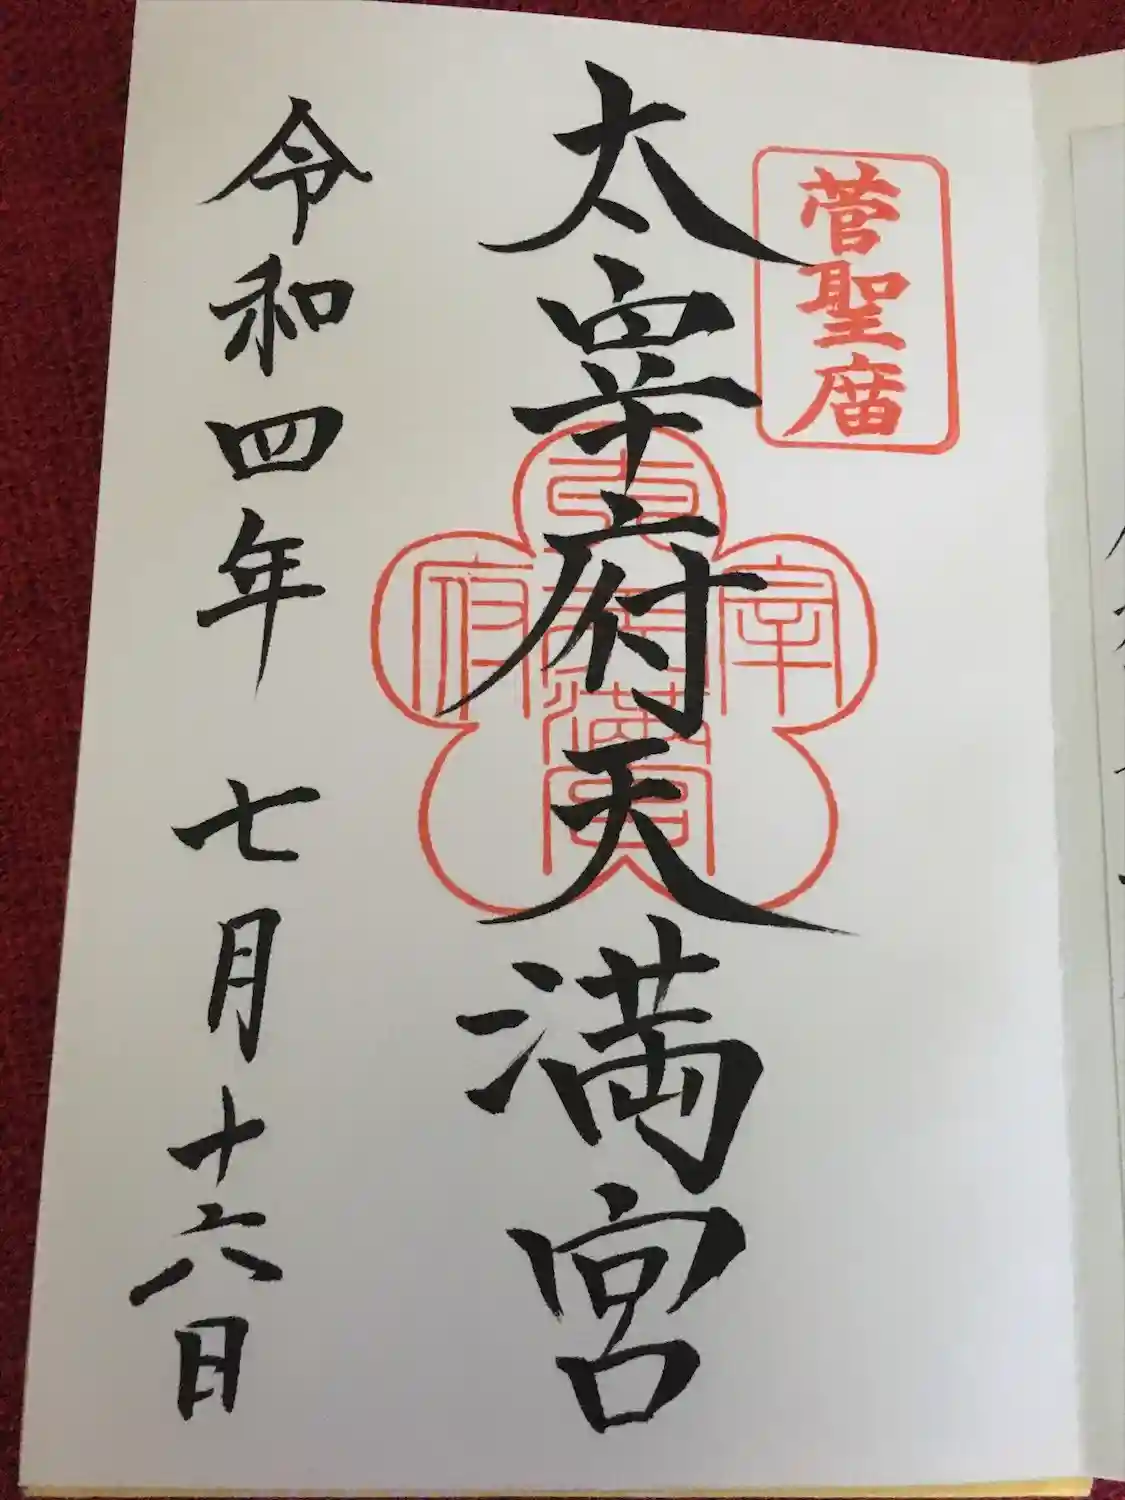 菅聖庿
太宰府天満宮
太宰府天満宮
令和四年 七月十六日